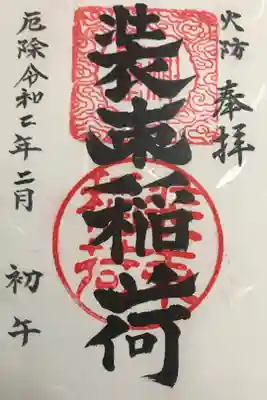 火防
奉拝
装束稲荷
厄除令和七年二月
初午